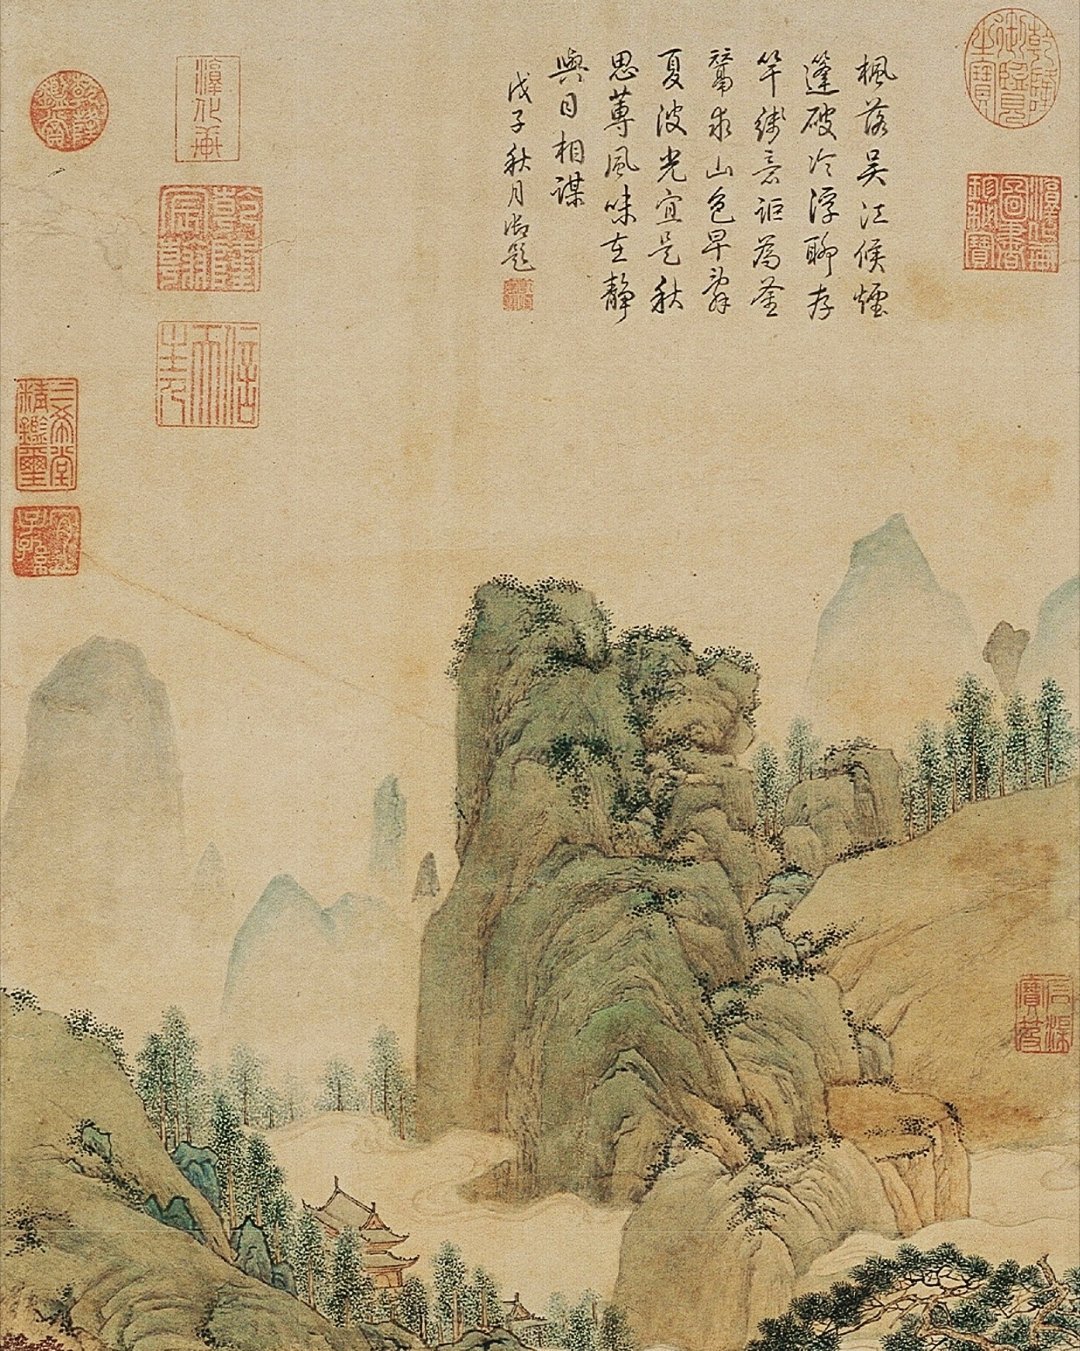 乾隆御覽之寶
淳化軒圖書珍秘寶
楓落吴江候煙
篷破冷浮聊存
竿綫意詎為釜
鬵求山色早辭
夏波光宜是秋
思蓴風味在静
與目相謀
戊子秋月御題
淳化軒
乾隆宸翰
信天主人
乾隆鑑賞
三希堂精鑑璽
宜子孫